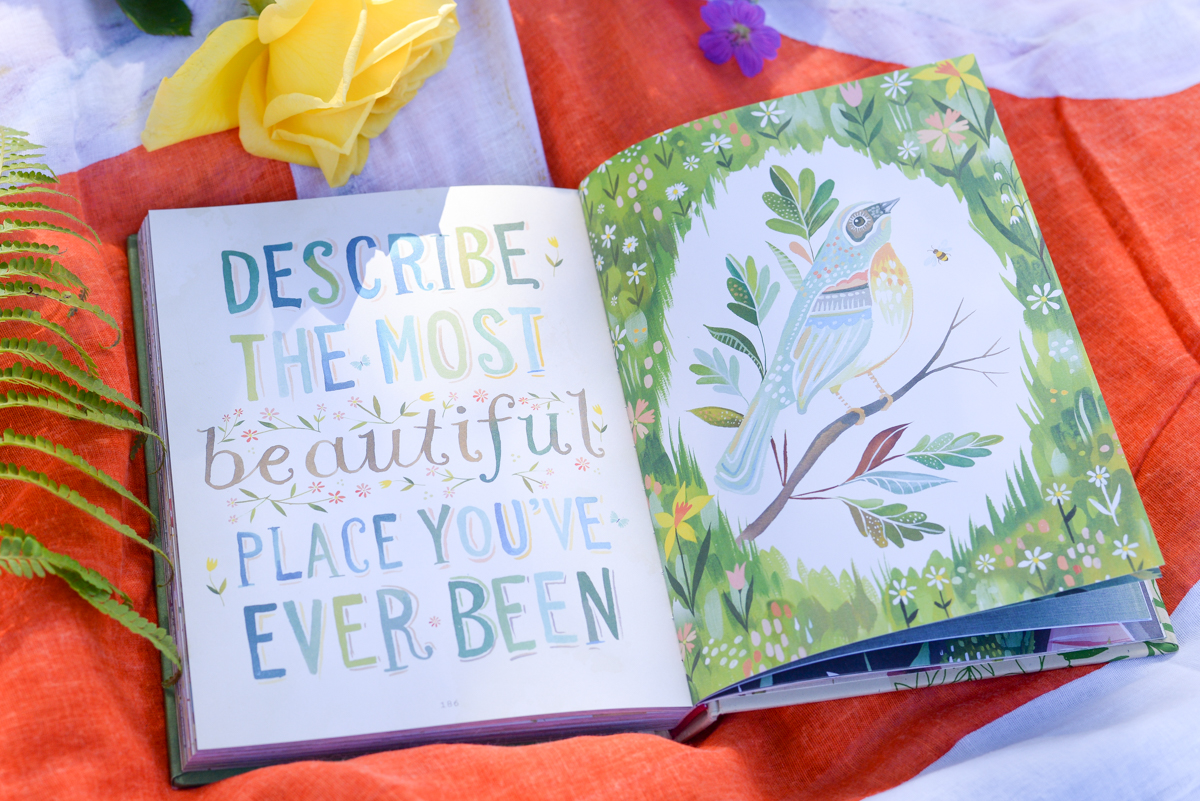 DESCRIBE
THE MOST
beautiful
PLACE YOU'VE
EVER BEEN
186